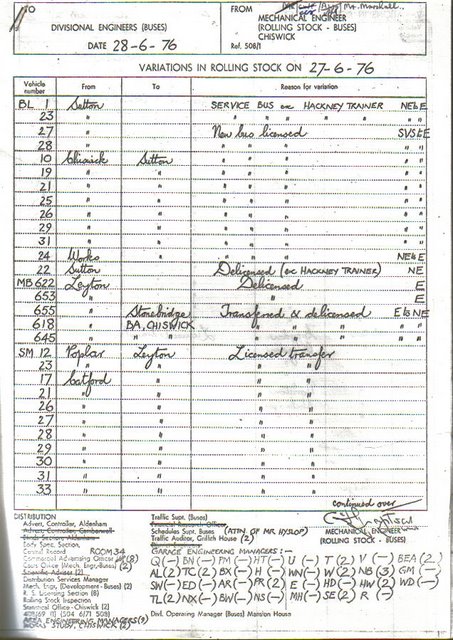 TO
DIVISIONAL ENGINEERS (BUSES)
DATE 28-6-76
FROM Mr. Marshall.
MECHANICAL ENGINEER
(ROLLING STOCK - BUSES)
CHISWICK
Ref. 508/1
VARIATIONS IN ROLLING STOCK ON 27-6-76
Vehicle number From To Reason for variation
BL 1 Sutton SERVICE BUS ex HACKNEY TRAINER NE & E
23 " " " " " " "
27 " New bus licensed SVS & E
28 " " " " " "
10 Chiswick Sutton " " " " "
19 " " " " " " "
21 " " " " " " "
25 " " " " " " "
26 " " " " " " "
29 " " " " " " "
31 " " " " " " "
24 Works " " " " NE & E
22 Sutton Delicensed (ex HACKNEY TRAINER) NE
MB 622 Leyton Delicensed E
653 " " E
655 " Stonebridge Transferred & delicensed E & NE
618 " BA, CHISWICK " " " " "
645 " " " " " " " "
SM 12 Poplar Leyton Licensed transfer
23 " " " "
17 Catford " " "
21 " " " "
26 " " " "
27 " " " "
28 " " " "
29 " " " "
30 " " " "
31 " " " "
33 " " " "
continued over
DISTRIBUTION
Advert. Controller, Aldenham
Advert. Controller, Camberwell
Central Record ROOM 34
Commercial Advertising Officer (8)
Louis Office (Mech. Engr. Buses) (2)
Scientific Adviser (2)
Distribution Services Manager
Mech. Engr. (Development - Buses) (2)
R. S. Licensing Section (8)
Rolling Stock Inspection
Statistical Office - Chiswick (2)
AREA ENGINEERING MANAGERS (3)
WORKS STUDY, CHISWICK (2)
Traffic Supt. (Buses)
Financial Research Officer
Schedules Supt. Buses (ATTN. OF MR HYSLOP)
Traffic Auditor, Griffith House (2)
MECHANICAL ENGINEER
(ROLLING STOCK - BUSES)
GARAGE ENGINEERING MANAGERS :-
Q (-) BN (-) PM (-) HT (-) U (-) T (2) V (-) BEA (2)
AL (2) TC (2) BX (-) H (-) WN (-) W (2) NB (3) GM (-)
SW (-) ED (-) AR (-) PR (2) E (-) HD (-) HW (2) WD (-)
TL (2) NX (-) BW (-) NS (-) MH (-) SE (2) R (-)
Divl. Operating Manager (Buses) Mansion House